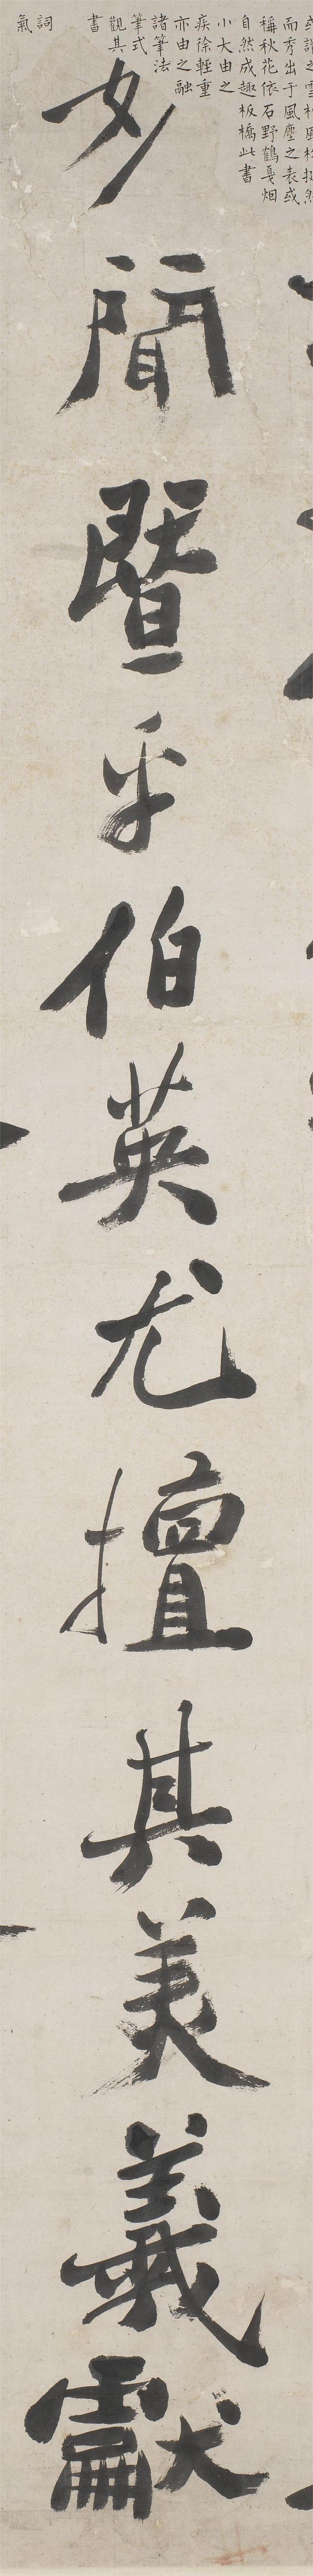 或謂之雪柏風松挺然
而秀出于風塵之表或
稱秋花依石野鶴戛烟
自然成趣板橋此書
小大由之
疾徐輕重
亦由之融
諸筆法
筆式
觀其
書
詞
氣
少聞暨乎伯英尤擅其美羲獻